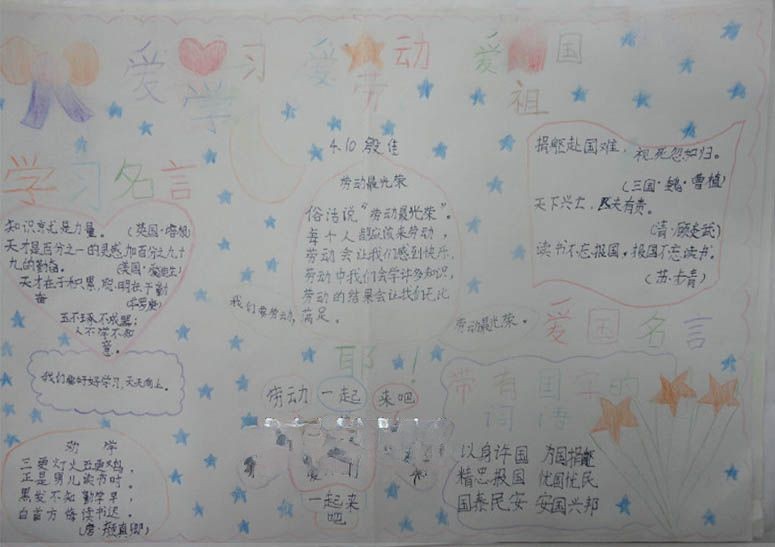 爱学习 爱劳动 爱祖国
4.10 殷佳
学习名言
知识就是力量。
(英国·培根)
天才是百分之一的灵感,加百分之九十
九的勤奋。
(美国·爱迪生)
天才在于积累,聪明在于勤
奋
(华罗庚)
玉不琢不成器;
人不学不知
意。
我们要好好学习,天天向上。
劝 学
三更灯火五更鸡,
正是男儿读书时。
黑发不知勤学早,
白首方悔读书迟。
(唐·颜真卿)
劳动最光荣
俗话说“劳动最光荣”。
每个人都应该来劳动,
劳动会让我们感到快乐.
劳动中我们会学许多知识,
劳动的结果会让我们无比
满足。
我们劳动,
劳动最光荣。
耶!
劳动 一起 来吧
一起来
吧
捐躯赴国难,视死忽如归。
(三国·魏·曹植)
天下兴亡,匹夫有责。
(清·顾炎武)
读书不忘报国,报国不忘读书。
(苏步青)
爱国名言
带有国字的
词语
以身许国 为国捐躯
精忠报国 忧国忧民
国泰民安 安国兴邦